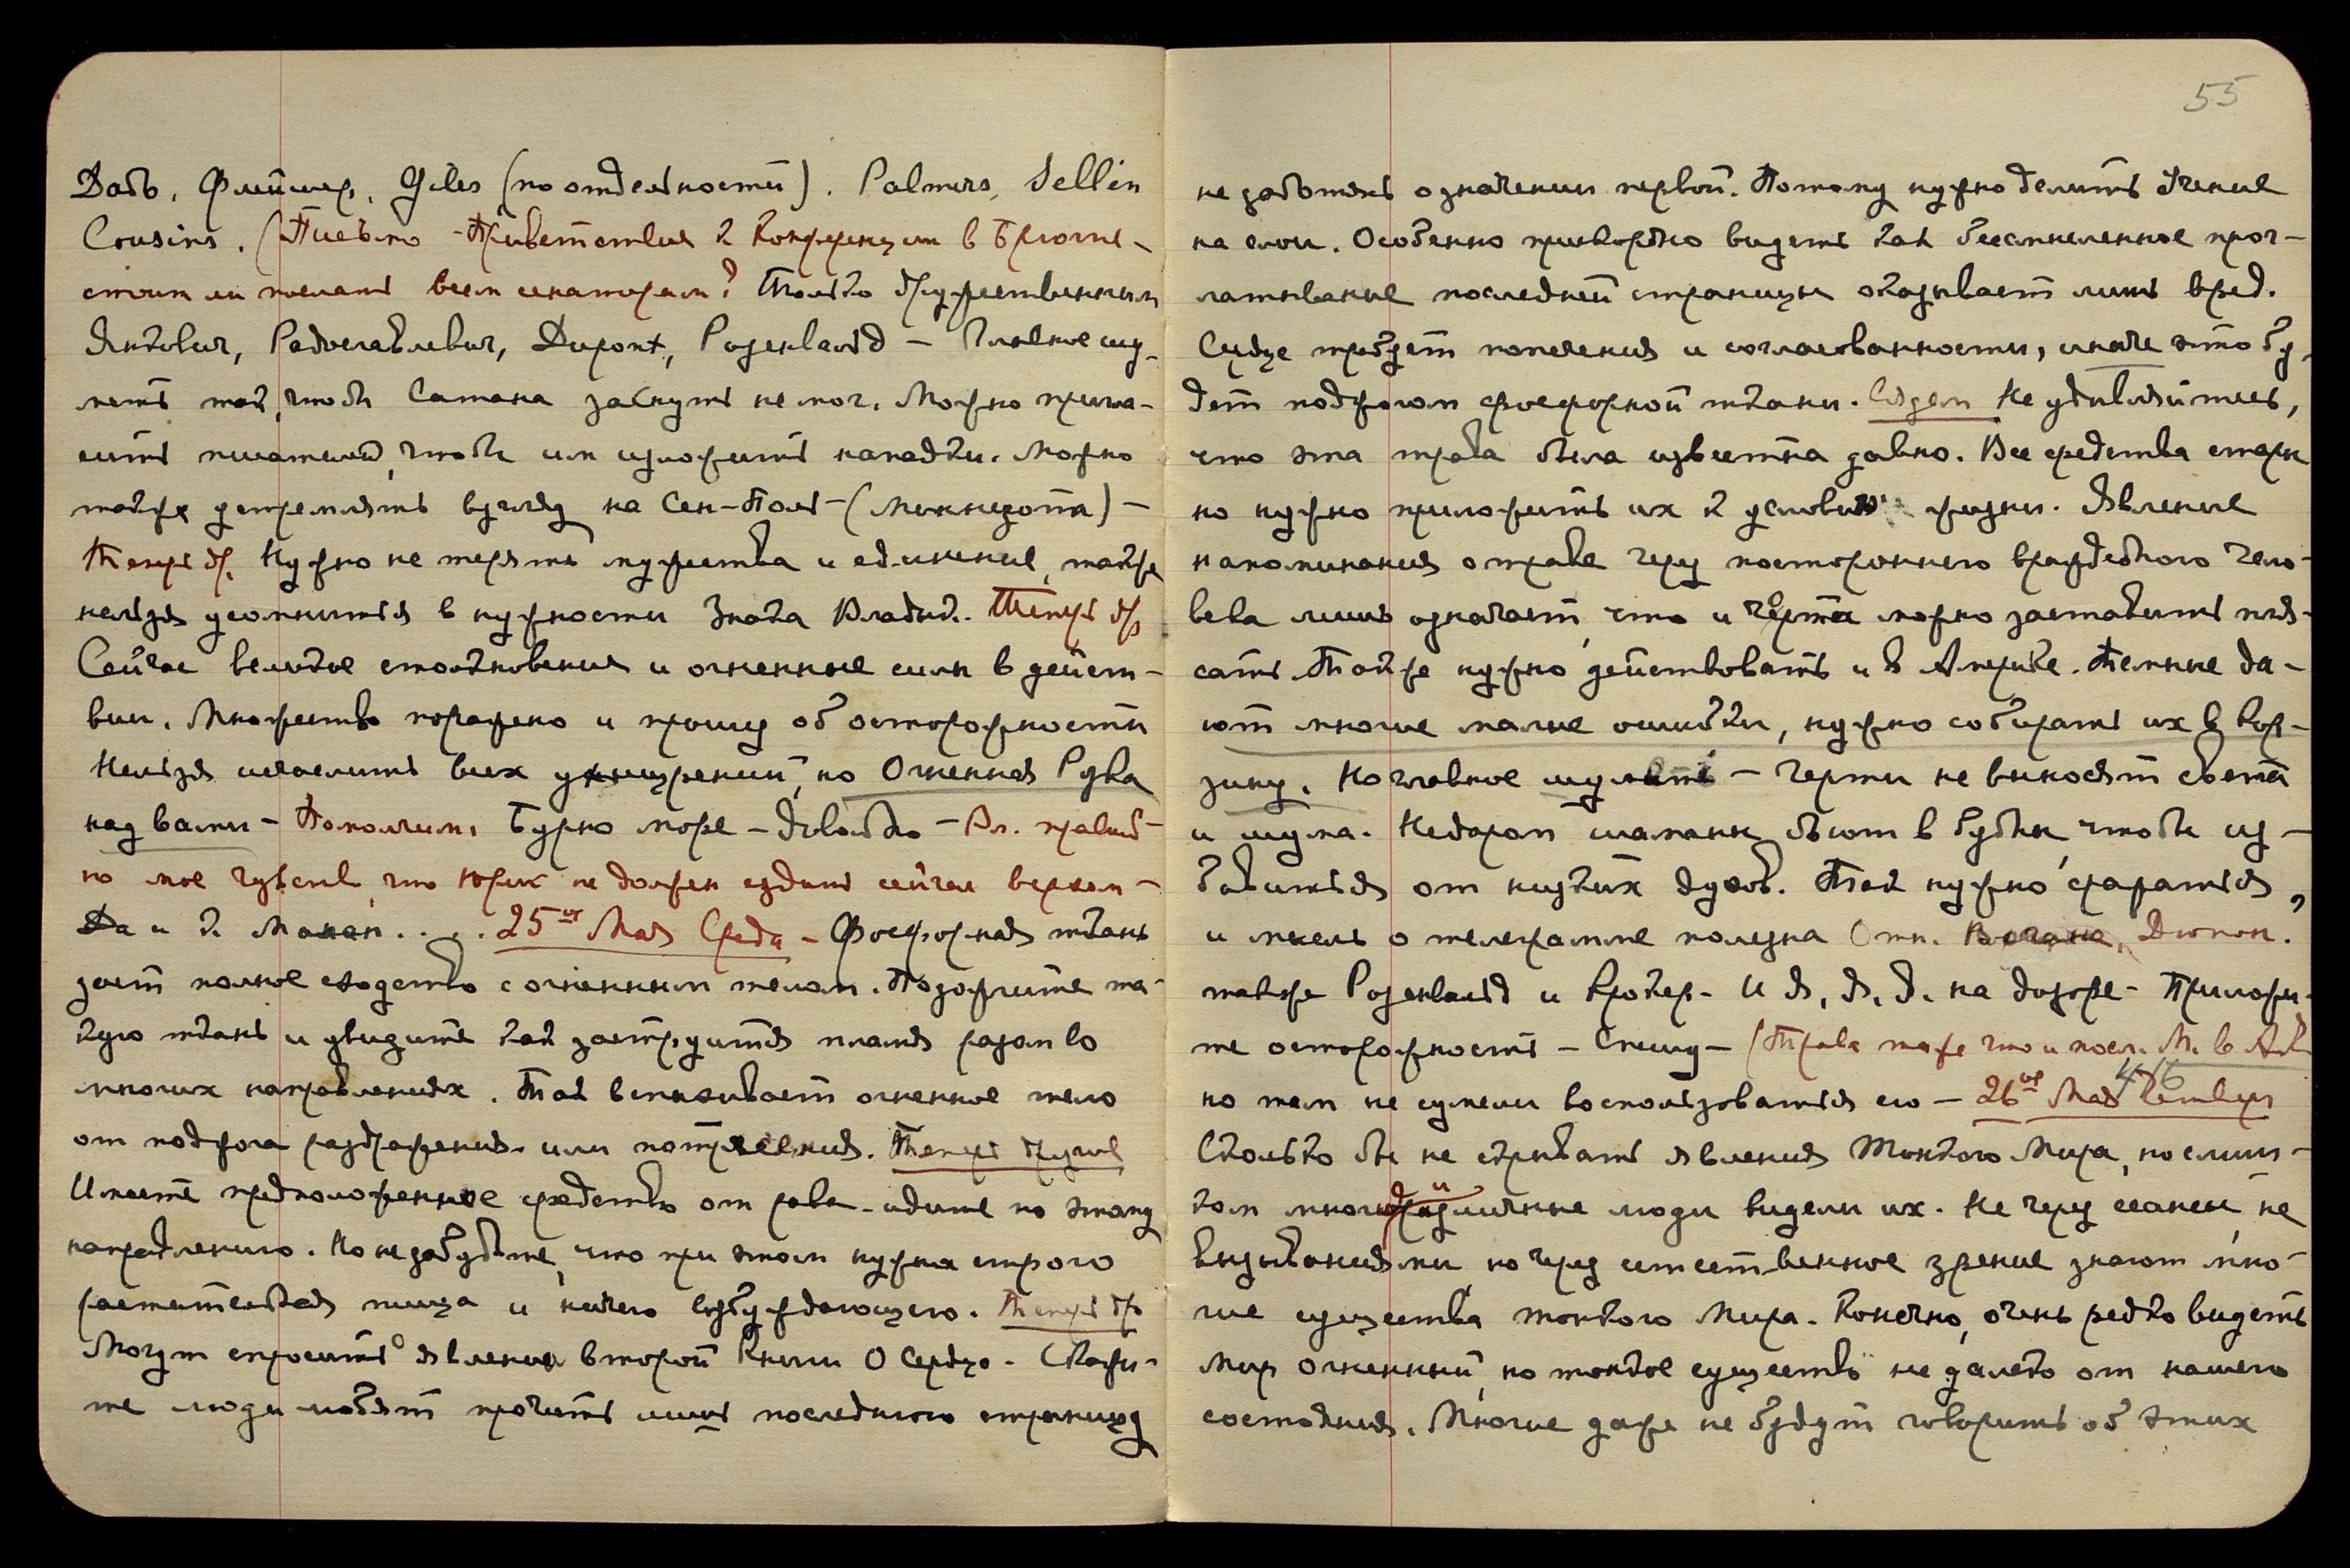 55
Дабо. Флейшер. Giles (по отдельности). Palmers, Sellin
Cousins. (Письмо - Приветствия к Конференции в Брюгге -
стоит ли послать всем сенаторам? Только дружественным
Янкович, Радосавлевич, Dupont, Розенвальд – Главное шу-
меть так, чтобы Сатана заснуть не мог. Можно пригла-
сить писателей, чтобы им изложить нападки. Можно
также устремлять взгляд на Сен-Поль – (Миннезота) –
Теперь др. Нужно не терять мужества и единение, также
нельзя усомниться в нужности Знака Владык. Теперь др
Сейчас великое столкновение и огненные силы в дейст-
вии. Множество поражено и прошу об осторожности
Нельзя исчислить всех ухищрений, но Огненная Рука
над вами – Помолчим. Бурно море – довольно – Вл. правиль-
но мое чувств, что Юрик не должен ездить сейчас верхом –
Да и к. Монан . . . . 25ое Мая Среда – Фосфорная ткань
дает полное сходство с огненным телом. Подожгите та-
кую ткань и увидите как заструится пламя разом во
многих направлениях. Так вспыхивает огненное тело
от поджога раздражения или потрясения. Теперь другое
Имеете предположенное средство от рака – идите по этому
направлению. Но не забудьте, что при этом нужна строго
растительная пища и ничего возбуждающего. Теперь др
Могут спросить о явлении второй Книги О Сердце – Скажи-
те люди любят прочить лишь последнюю страницу
не заботясь о значении первой. Потому нужно делить Учение
на слои. Особенно прискорбно видеть как бессмысленное прог-
латывание последней страницы оказывает лишь вред.
Сердце требует попечения и согласованности, иначе это бу-
дет поджогом фосфорной ткани. Седем Не удивляйтесь,
что эта трава была известна давно. Все средства стары
но нужно приложить их к условию жизни. Явление
напоминания о траве через постороннего враждебного чело-
века лишь означает, что и чёрта можно заставить пля-
сать. Также нужно действовать и в Америке. Темные да-
ют многие малые ошибки, нужно собирать их в кор-
зину. Но главное шумите – Черти не выносят света
и шума. Недаром шаманы бьют в бубны, чтобы из-
бавиться от низких духов. Так нужно сражаться,
и мысль о телеграмме полезна Отп. Дюпон.
также Розенвальд и Крокер – И Я, Я, Я. на дозоре – Приложи-
те осторожность – Спешу – (Трава та же что и посл. М. в Ам
но там не сумели воспользоваться ею – 26ое Мая Четверг
476
Сколько бы не скрывать явления Тонкого Мира, но слиш-
ком многие различные люди видели их. Не через сеансы, не
вызываниями, но через естественное зрение знают мно-
гие существа тонкого Мира. Конечно, очень редко видеть
Мир огненный, но тонкое существо не далеко от нашего
состояния. Многие даже не будут говорить об этих